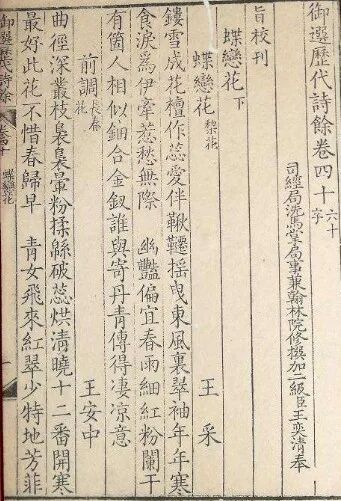 御選歷代詩餘卷四十 六十字
司經局洗馬掌局事兼翰林院修撰加二級臣王奕清奉
旨校刊
蝶戀花下
蝶戀花 梨花 王采
鏤雪成花檀作蕊愛伴鞦韆摇曳東風裏翠袖年年寒
食淚為伊牽惹愁無際 幽豔偏宜春雨細紅粉闌干
有箇人相似鈿合金釵誰與寄丹青傳得凄凉意
前調 長春花 王安中
曲徑深叢枝裊裊暈粉揉緜破蕊烘清曉十二番開寒
最好此花不惜春歸早 青女飛來紅翠少特地芳菲
御選歷代詩餘 卷四十 蝶戀花 一